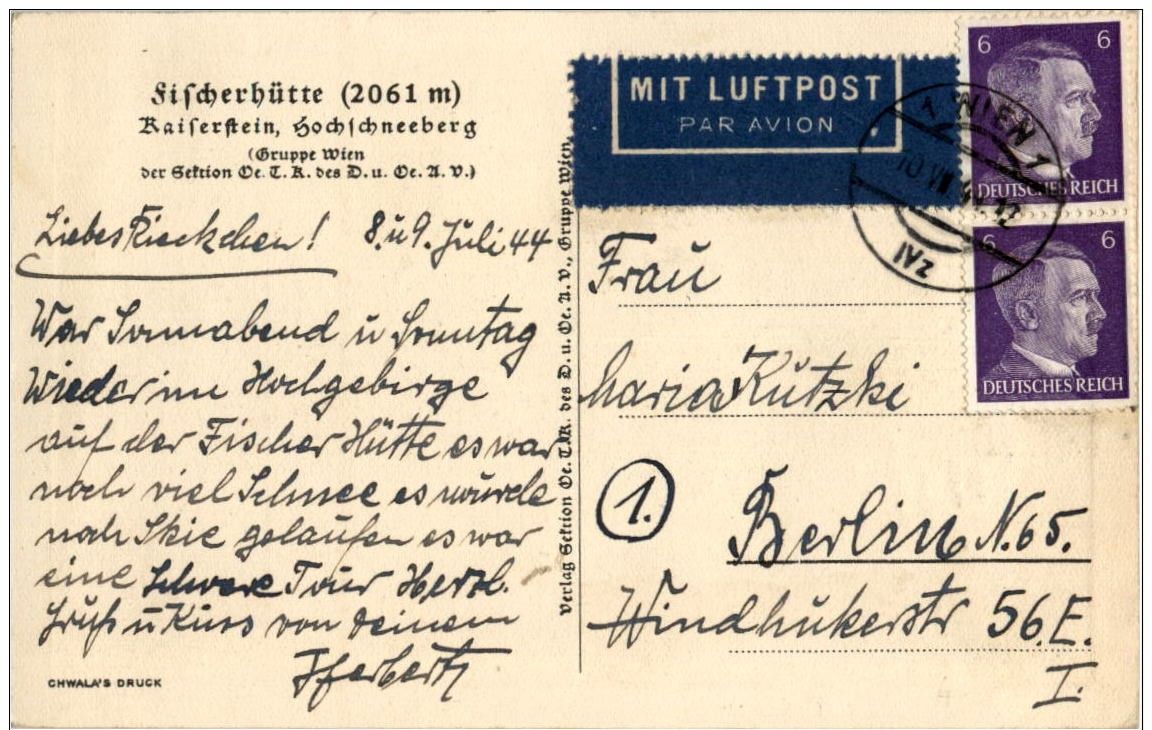 Fischerhütte (2061 m)
Kaiserstein, Hochschneeberg
(Gruppe Wien
der Sektion Oe. T. K. des D. u. Oe. A. V.)
Liebes Rieckchen! 8. u 9. Juli 44
War Sonnabend u Sonntag
Wieder im Hochgebirge
auf der Fischer Hütte es war
noch viel Schnee es wurde
noch Skie gelaufen es war
eine Schwere Tour Herzl.
Gruß u Kuss von deinem
Herbert
CHWALA'S DRUCK
Verlag Sektion Oe. T. K. des D. u. Oe. A. V., Gruppe Wien
MIT LUFTPOST
PAR AVION
6 6
DEUTSCHES REICH
6 6
DEUTSCHES REICH
1 WIEN 1
IVz
Frau
Maria Kutzki
1.
Berlin N. 65.
Windhukerstr 56. E.
I.